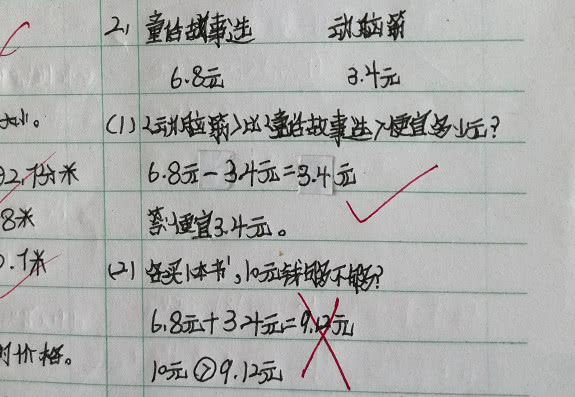 2, 童话故事选 动脑筋
6.8元 3.4元
(1)《动脑筋》比《童话故事选》便宜多少元?
大小。
6.8元-3.4元=3.4元
92.7分米
8米
答:便宜3.4元。
0.7米
(2) 各买1本书,10元钱够不够?
6.8元+3.4元=9.12元
时价格。
10元>9.12元